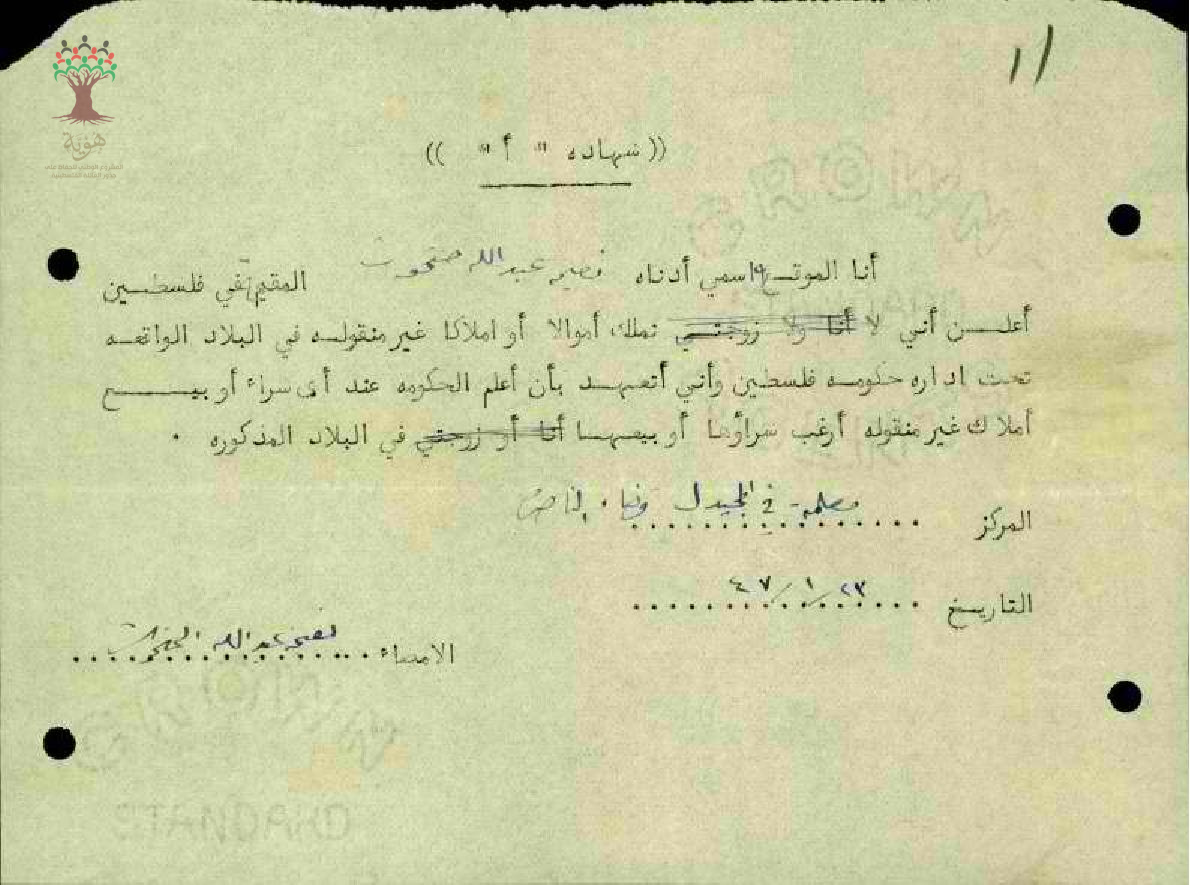 11
هوية
(( شهاده " أ " ))
أنا الموقعة اسمي أدناه عبدالله المقيمة في فلسطين
أعلن أني لا أنا ولا زوجتي تملك أموالا أو املاكا غير منقوله في البلاد الواقعه
تحت اداره حكومه فلسطين وأني أتعهد بأن أعلم الحكومه عند أى شراء أو بيع
أملاك غير منقوله أرغب شراؤها أو بيعها أنا أو زوجتي في البلاد المذكوره .
المركز معلمة في المجدل
التاريخ ٢٣/١/٤٧
الامضاء عبدالله
CROWN
MAGNATE
CROWN
MAGNATE